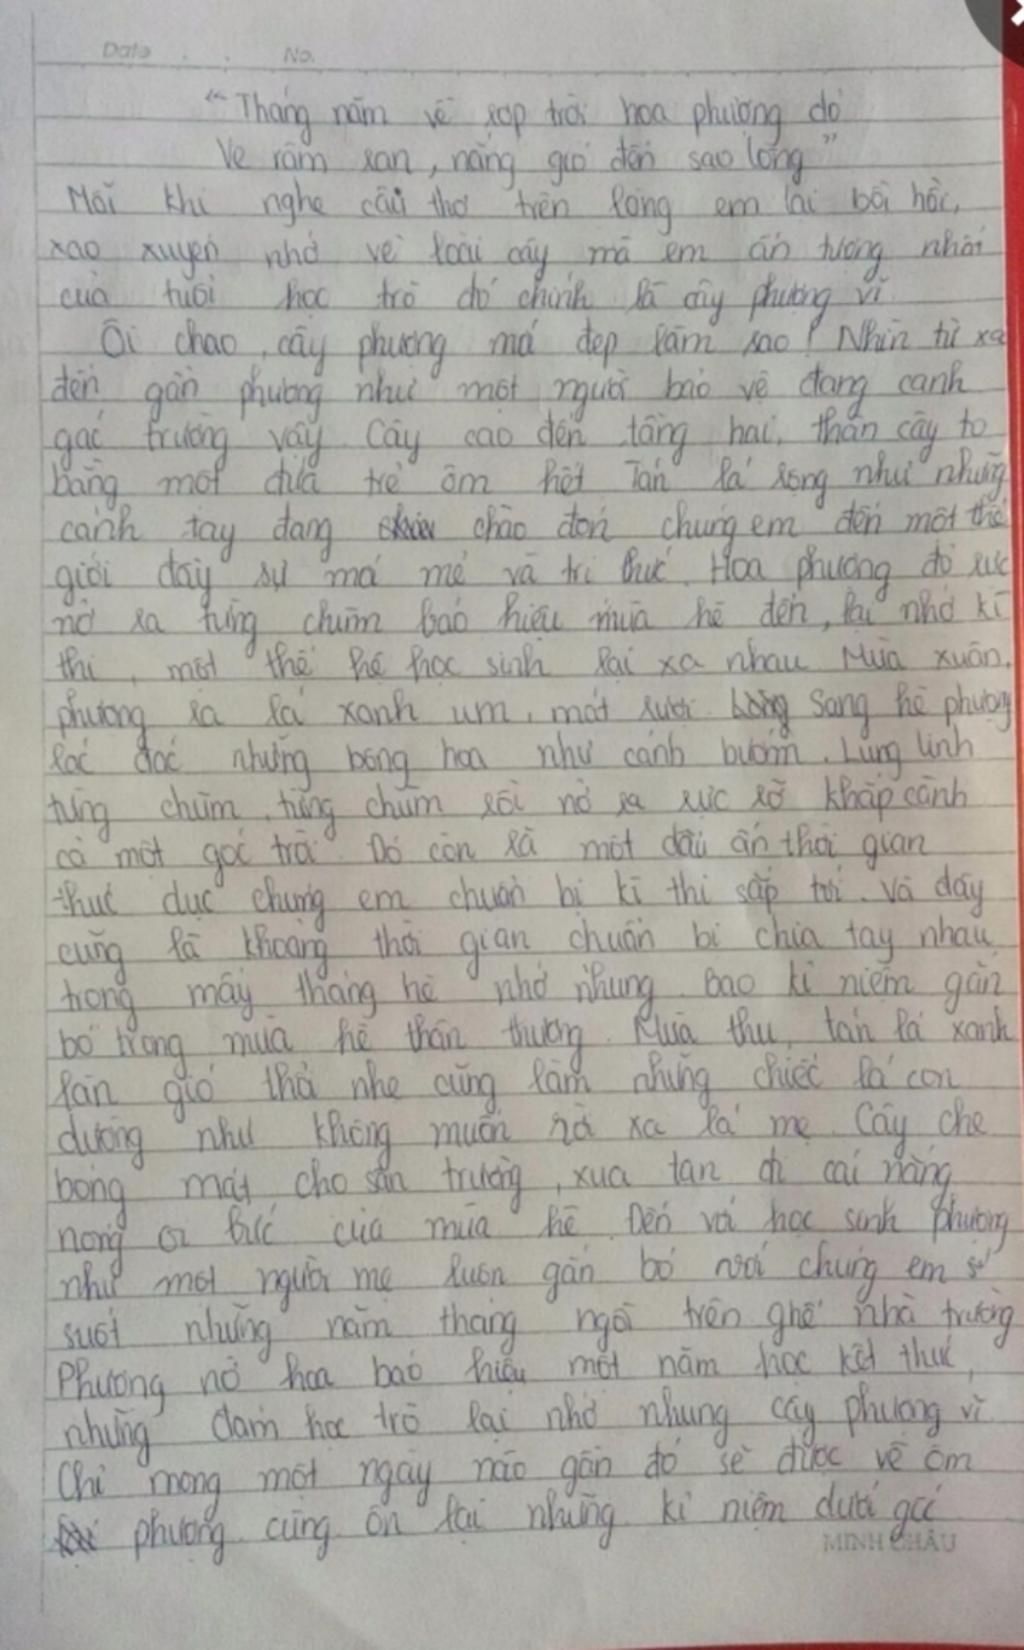 Date . . No.
"Tháng năm về rợp trời hoa phượng đỏ
Ve râm ran, nắng gió đến sao lòng"
Mỗi khi nghe câu thơ trên lòng em lại bồi hồi,
xao xuyến nhớ về loài cây mà em ấn tượng nhất
của tuổi học trò đó chính là cây phượng vĩ
Ôi chao, cây phượng má đẹp làm sao! Nhìn từ xa
đến gần phượng như một người bảo vệ đang canh
gác trường vậy. Cây cao đến tầng hai, thân cây to
bằng một đứa trẻ ôm hết Tán lá rộng như những
cánh tay đang chào đón chúng em đến một thế
giới đầy sự mới mẻ và tri thức. Hoa phượng đỏ rực
nở ra từng chùm báo hiệu mùa hè đến, lại nhớ kì
thi, một thế hệ học sinh lại xa nhau Mùa xuân,
phượng ra lá xanh um, mát rượi. Sang hè phượng
lác đác những bông hoa như cánh bướm. Lung linh
từng chùm, từng chùm rồi nở ra rực rỡ khắp cành
cả một góc trời. Đó còn là một dấu ấn thời gian
thúc dục chúng em chuẩn bị kì thi sắp tới. Và đây
cũng là khoảng thời gian chuẩn bị chia tay nhau
trong mấy tháng hè nhớ nhung bao kỉ niệm gắn
bó trong mùa hè thân thương. Mùa thu, tán lá xanh
lần gió thả nhẹ cũng làm những chiếc lá con
dường như không muốn rời xa lá mẹ. Cây che
bóng mát cho sân trường, xua tan đi cái nắng
nóng oi bức của mùa hè. Đến với học sinh phượng
như một người mẹ luôn gắn bó với chúng em
suốt những năm tháng ngồi trên ghế nhà trường
Phượng nở hoa báo hiệu một năm học kết thúc,
những đám học trò lại nhớ nhung cây phượng vĩ.
Chỉ mong một ngày nào gần đó sẽ được về ôm
phượng cùng ôn lại những kỉ niệm dưới gốc
MINH CHÂU